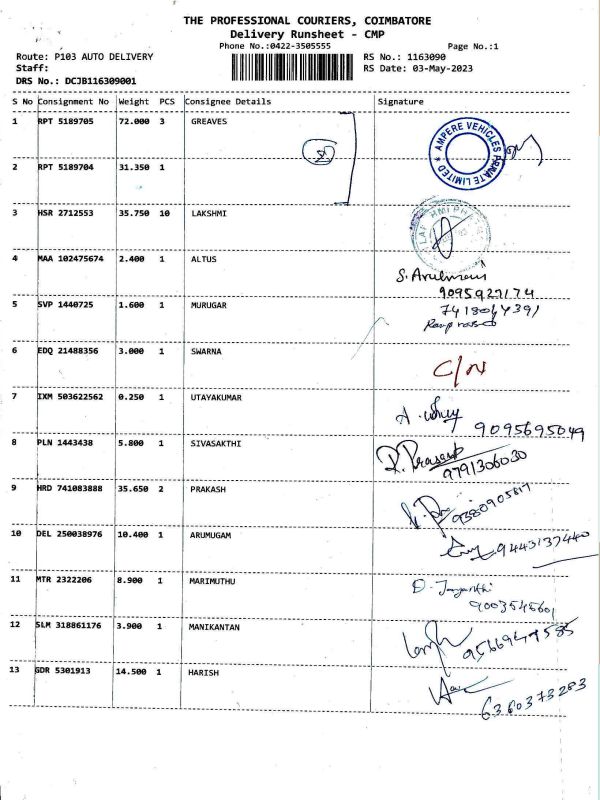 THE PROFESSIONAL COURIERS, COIMBATORE
Delivery Runsheet - CMP
Phone No.:0422-3505555 Page No.:1
Route: P103 AUTO DELIVERY RS No.: 1163090
Staff: RS Date: 03-May-2023
DRS No.: DCJB116309001
S No Consignment No Weight PCS Consignee Details Signature
1 RPT 5189705 72.000 3 GREAVES
AMPERE VEHICLES PRIVATE LIMITED
2 RPT 5189704 31.350 1
3 HSR 2712553 35.750 10 LAKSHMI
4 MAA 102475674 2.400 1 ALTUS
9095927174
5 SVP 1440725 1.600 1 MURUGAR
6 EDQ 21488356 3.000 1 SWARNA C/N
7 IXM 503622562 0.250 1 UTAYAKUMAR
9095695049
8 PLN 1443438 5.800 1 SIVASAKTHI R. Prasath
9791306030
9 HRD 741083888 35.650 2 PRAKASH 9380905817
10 DEL 250038976 10.400 1 ARUMUGAM 9443137440
11 MTR 2322206 8.900 1 MARIMUTHU D. Jayanthi
9003545601
12 SLM 318861176 3.900 1 MANIKANTAN
13 GDR 5301913 14.500 1 HARISH
6360373283